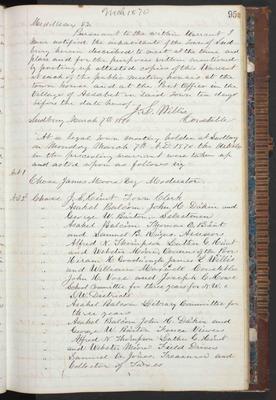 March 1870
95
Middlesex SS.
Pursuant to the within Warrant I
have notified the inhabitants of the town of Sud
bury herein described to meet at the time and
place and for the purposes within mentioned
by posting up attested copies of this Warrant
at each of the public meeting houses at the
town house and at the Post Office in the
Village of in said town ten days
before the date hereof
J. L. Willis
Sudbury March 7th 1870 Constable
At a legal town meeting holden at Sudbury
on Monday March 7th A.D. 1870 the articles
in the preceding warrant were taken up
and acted upon as follows viz
Art 1
Chose James Moore Esq Moderator
Art 2 Chose J. S. Hunt Town Clerk
Asahel Balcom, John H. Dakin and
George W. Hunt Selectmen
Asahel Balcom, Thomas P. Hunt
and Samuel B. Rogers Assessors
Alfred N. Thompson Luther G. Hunt
and Webster Moore Overseers of the Poor
Hiram H. Goodnough James L. Willis
and William Constable
John H. and Joseph C.
School Committee for three years for N.W. &
S.W. Districts
Asahel Balcom Library Committee for
three years
Asahel Balcom John H. Dakin and
George W. Hunt Fence Viewers
Alfred N. Thompson Luther G. Hunt
and Webster Moore Field Drivers
Samuel A. Jones Treasurer and
Collector of Taxes